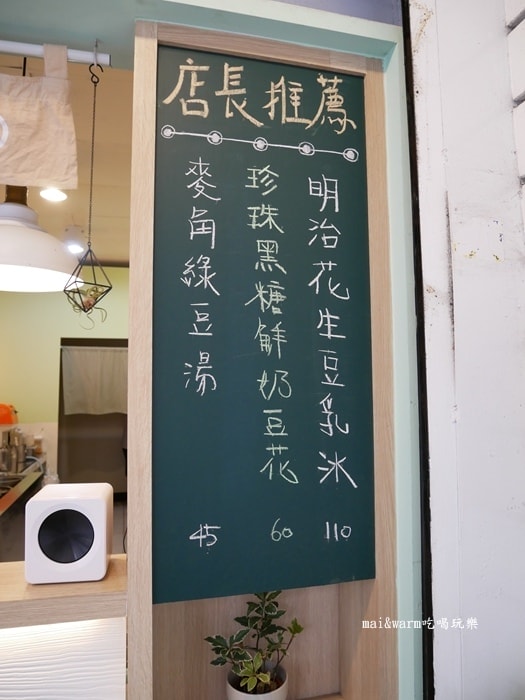 店長推薦
明治花生豆乳冰 110
珍珠黑糖鮮奶豆花 60
麥角綠豆湯 45
mai&warm吃喝玩樂